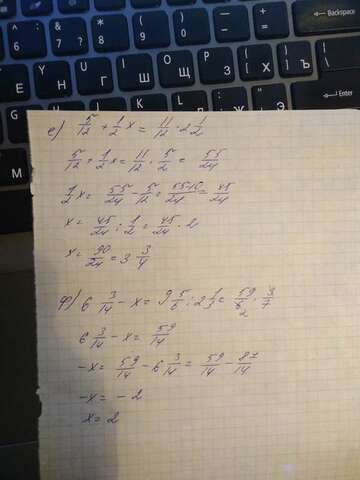 ^ 6 & 7 * 8 ( 9 ) 0 _ - + = Backspace
Г Ш Щ З Х Ъ
Э
М
е) 5/12 + 1/2 x = 11/12 · 2 1/2
5/12 + 1/2 x = 11/12 · 5/2 = 55/24
1/2 x = 55/24 - 5/12 = 55-10/24 = 45/24
x = 45/24 : 1/2 = 45/24 · 2
x = 90/24 = 3 3/4
ф) 6 3/14 - x = 9 5/6 : 2 1/3 = 59/6 · 3/7
2
6 3/14 - x = 59/14
-x = 59/14 - 6 3/14 = 59/14 - 87/14
-x = - 2
x = 2